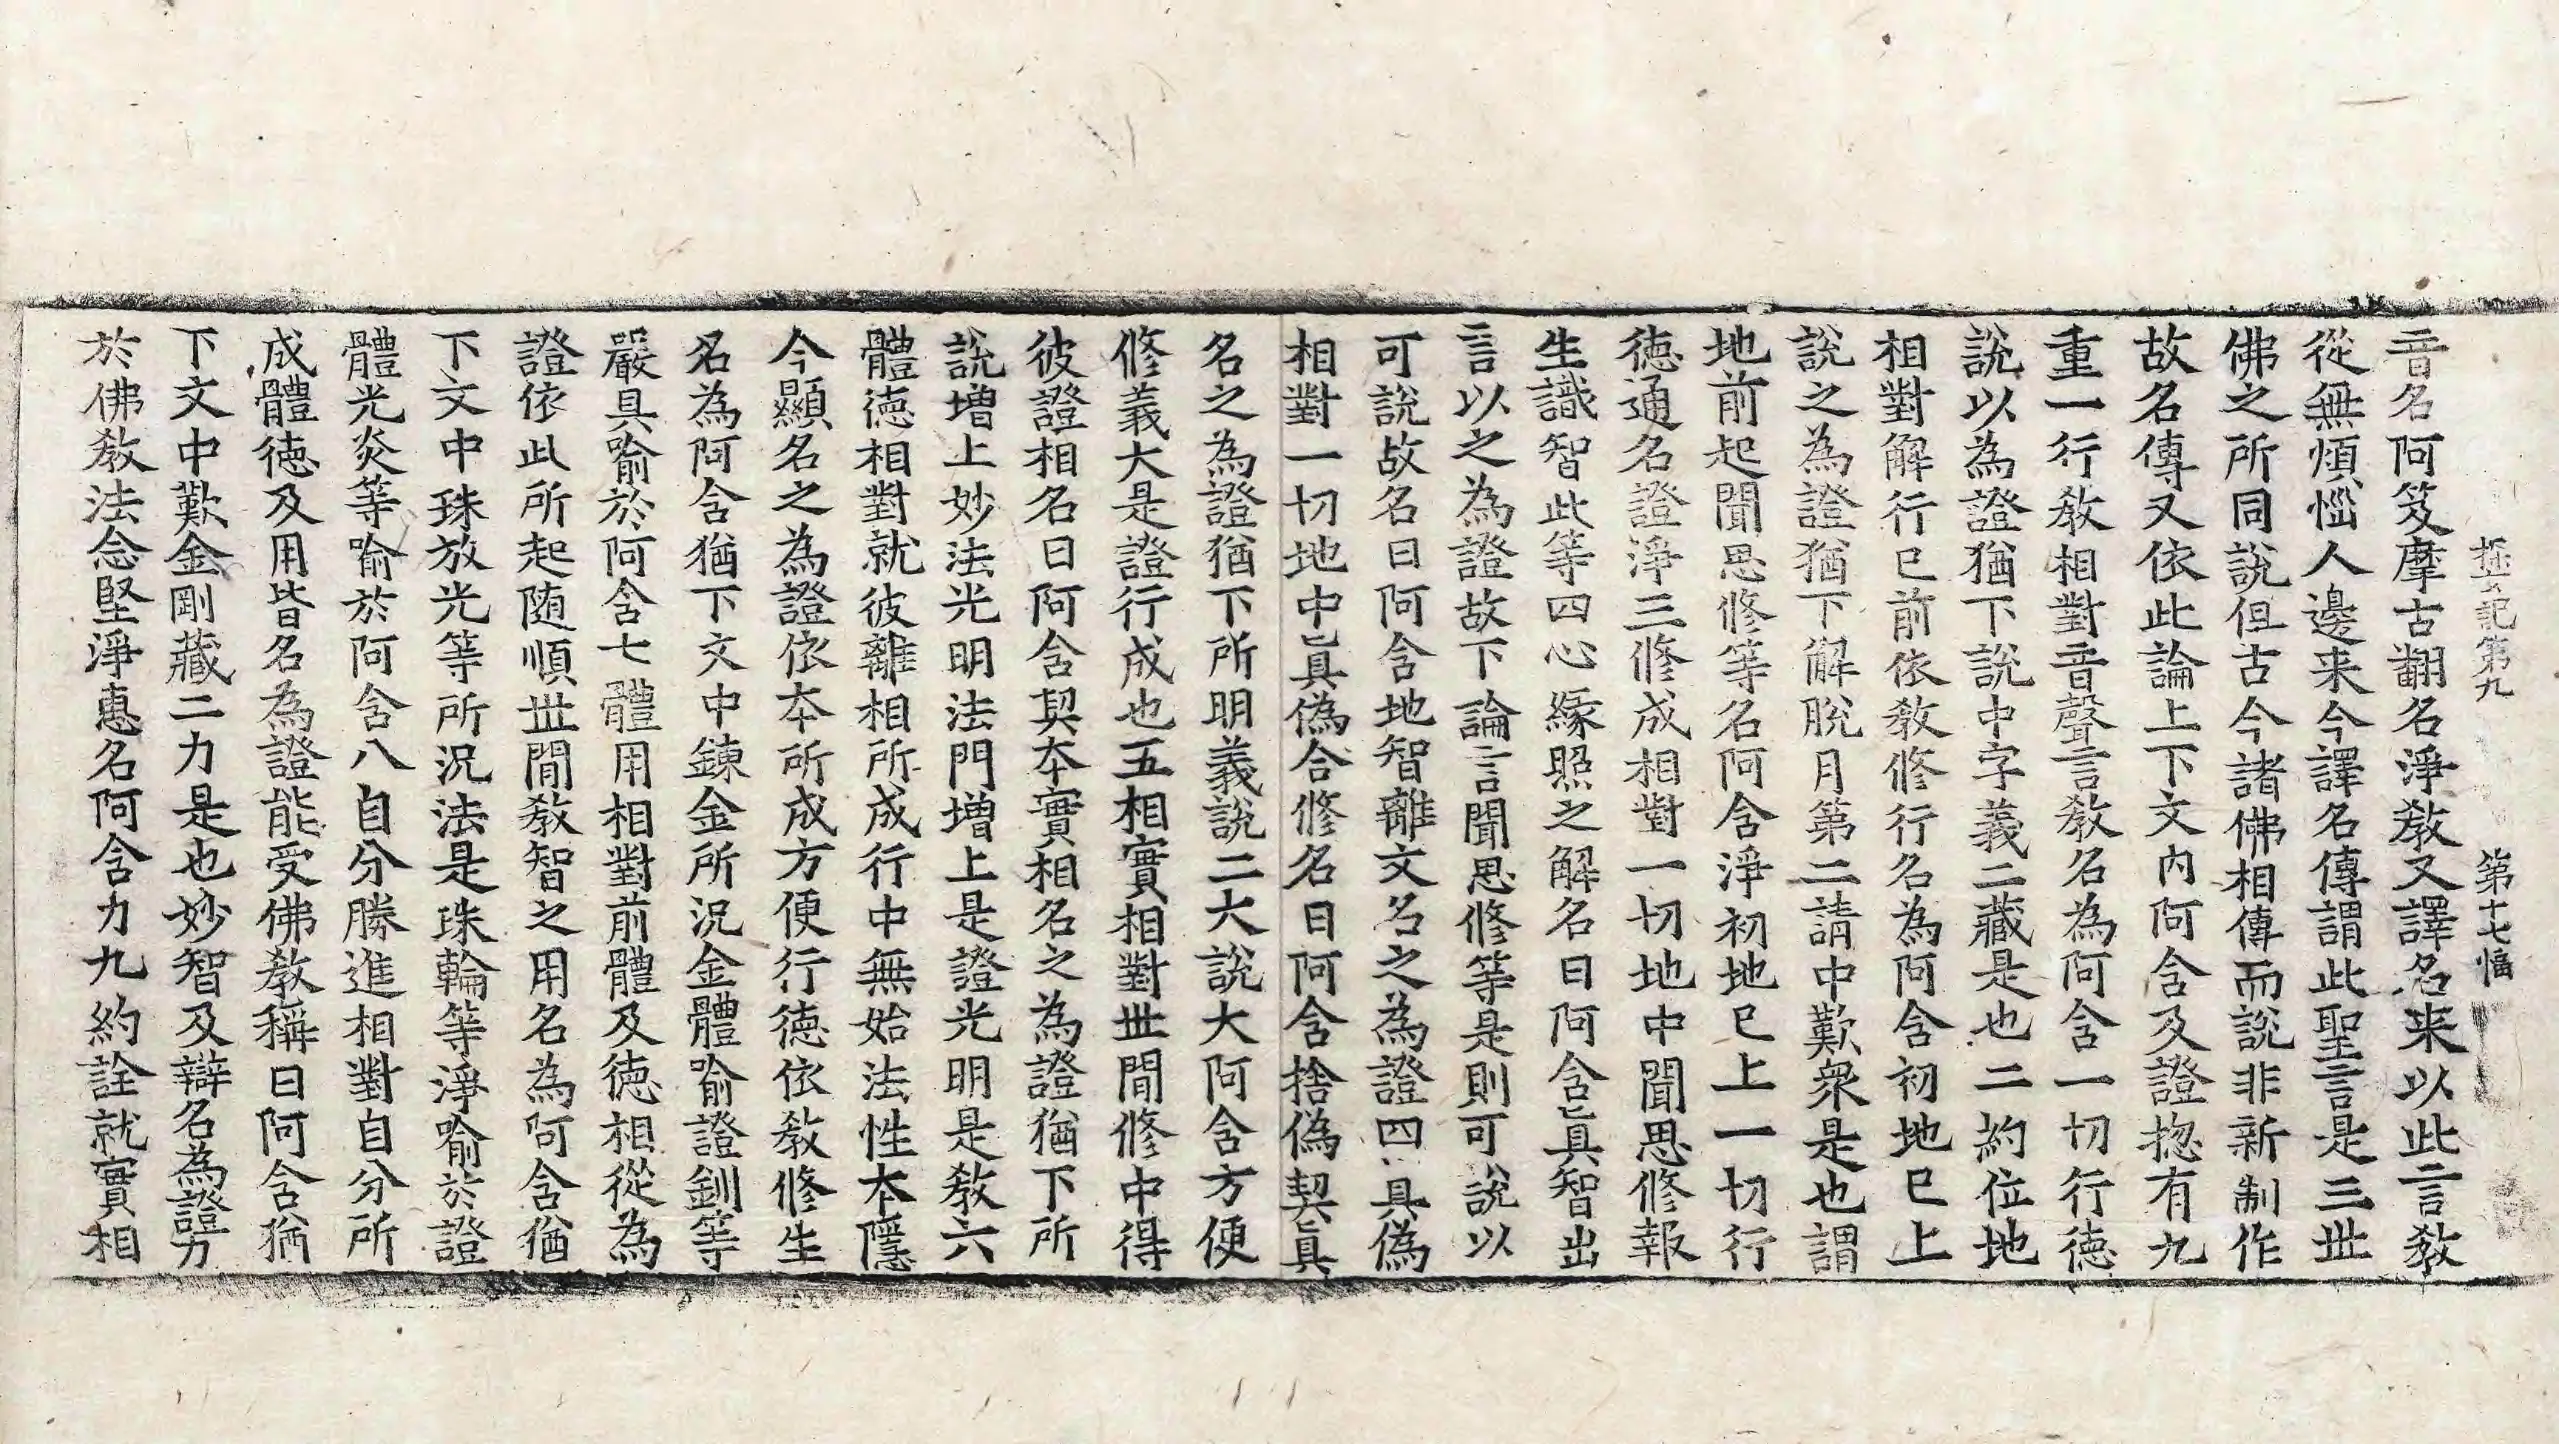 探玄記第九　第十七幅
音名阿笈摩古翻名淨教又譯名来以此言教
從無煩惱人邊来今譯名傳謂此聖言是三世
佛之所同說但古今諸佛相傳而說非新制作
故名傳又依此論上下文內阿含及證揔有九
重一行教相對音聲言教名為阿含一切行德
說以為證猶下說中字義二藏是也二約位地
相對解行已前依教修行名為阿含初地已上
說之為證猶下解脫月第二請中歎衆是也謂
地前起聞思修等名阿含淨初地已上一切行
德通名證淨三修成相對一切地中聞思修報
生識智此等四心緣照之解名曰阿含真智出
言以之為證故下論言聞思修等是則可說以
可說故名曰阿含地智離文名之為證四具偽
相對一切地中真偽合修名曰阿含捨偽契真
名之為證猶下所明義說二大說大阿含方便
修義大是證行成也五相實相對世間修中得
彼證相名曰阿含契本實相名之為證猶下所
說增上妙法光明法門增上是證光明是教六
體德相對就彼離相所成行中無始法性本隱
今顯名之為證依本所成方便行德依教修生
名為阿含猶下文中鍊金所況金體喻證釧等
嚴具喻於阿含七體用相對前體及德相從為
證依此所起随順世間教智之用名為阿含猶
下文中珠放光等所況法是珠輪等淨喻於證
體光炎等喻於阿含八自分勝進相對自分所
成體德及用皆名為證能受佛教稱曰阿含猶
下文中歎金剛藏二力是也妙智及辯名為證力
於佛教法念堅淨惠名阿含力九約詮就實相